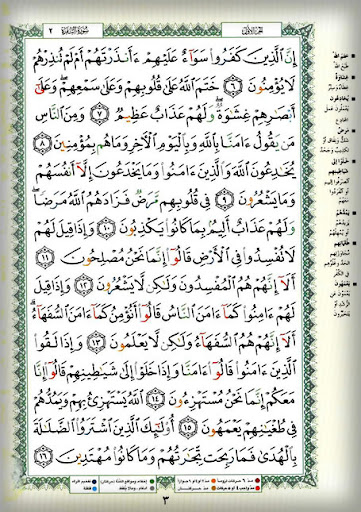 الجزء الأول
سورة البقرة ٢
إِنَّ ٱلَّذِينَ كَفَرُوا۟ سَوَآءٌ عَلَيْهِمْ ءَأَنذَرْتَهُمْ أَمْ لَمْ تُنذِرْهُمْ
لَا يُؤْمِنُونَ ٦ خَتَمَ ٱللَّهُ عَلَىٰ قُلُوبِهِمْ وَعَلَىٰ سَمْعِهِمْ ۖ وَعَلَىٰٓ
أَبْصَٰرِهِمْ غِشَٰوَةٌ ۖ وَلَهُمْ عَذَابٌ عَظِيمٌ ٧ وَمِنَ ٱلنَّاسِ
مَن يَقُولُ ءَامَنَّا بِٱللَّهِ وَبِٱلْيَوْمِ ٱلْءَاخِرِ وَمَا هُم بِمُؤْمِنِينَ ٨
يُخَٰدِعُونَ ٱللَّهَ وَٱلَّذِينَ ءَامَنُوا۟ وَمَا يَخْدَعُونَ إِلَّآ أَنفُسَهُمْ
وَمَا يَشْعُرُونَ ٩ فِى قُلُوبِهِم مَّرَضٌ فَزَادَهُمُ ٱللَّهُ مَرَضًا ۖ
وَلَهُمْ عَذَابٌ أَلِيمٌۢ بِمَا كَانُوا۟ يَكْذِبُونَ ١٠ وَإِذَا قِيلَ لَهُمْ
لَا تُفْسِدُوا۟ فِى ٱلْأَرْضِ قَالُوٓا۟ إِنَّمَا نَحْنُ مُصْلِحُونَ ١١
أَلَآ إِنَّهُمْ هُمُ ٱلْمُفْسِدُونَ وَلَٰكِن لَّا يَشْعُرُونَ ١٢ وَإِذَا قِيلَ
لَهُمْ ءَامِنُوا۟ كَمَآ ءَامَنَ ٱلنَّاسُ قَالُوٓا۟ أَنُؤْمِنُ كَمَآ ءَامَنَ ٱلسُّفَهَآءُ ۗ
أَلَآ إِنَّهُمْ هُمُ ٱلسُّفَهَآءُ وَلَٰكِن لَّا يَعْلَمُونَ ١٣ وَإِذَا لَقُوا۟
ٱلَّذِينَ ءَامَنُوا۟ قَالُوٓا۟ ءَامَنَّا وَإِذَا خَلَوْا۟ إِلَىٰ شَيَٰطِينِهِمْ قَالُوٓا۟ إِنَّا
مَعَكُمْ إِنَّمَا نَحْنُ مُسْتَهْزِءُونَ ١٤ ٱللَّهُ يَسْتَهْزِئُ بِهِمْ وَيَمُدُّهُمْ
فِى طُغْيَٰنِهِمْ يَعْمَهُونَ ١٥ أُو۟لَٰٓئِكَ ٱلَّذِينَ ٱشْتَرَوُا۟ ٱلضَّلَٰلَةَ
بِٱلْهُدَىٰ فَمَا رَبِحَت تِّجَٰرَتُهُمْ وَمَا كَانُوا۟ مُهْتَدِينَ ١٦
٣